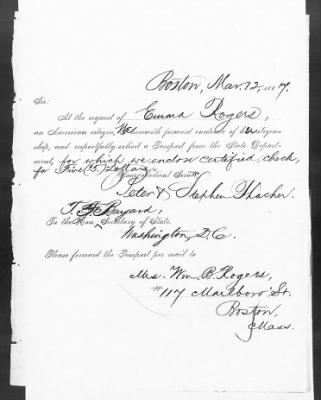 Boston, Mar. 12, 1887.
Sir:
At the request of Emma Rogers,
an American citizen, We herewith forward evidence of her citizen-
ship, and respectfully solicit a Passport from the State Depart-
ment, for which we enclose certified check,
for Five (5) Dollars.
Your obedient Servt.
Peter & Stephen Thacher.
T. F. Bayard,
To the Hon. Secretary of State.
Washington, D.C.
Please forward the Passport per mail to
Mrs. Wm. B. Rogers,
#117 Marlboro' St.
Boston,
Mass.